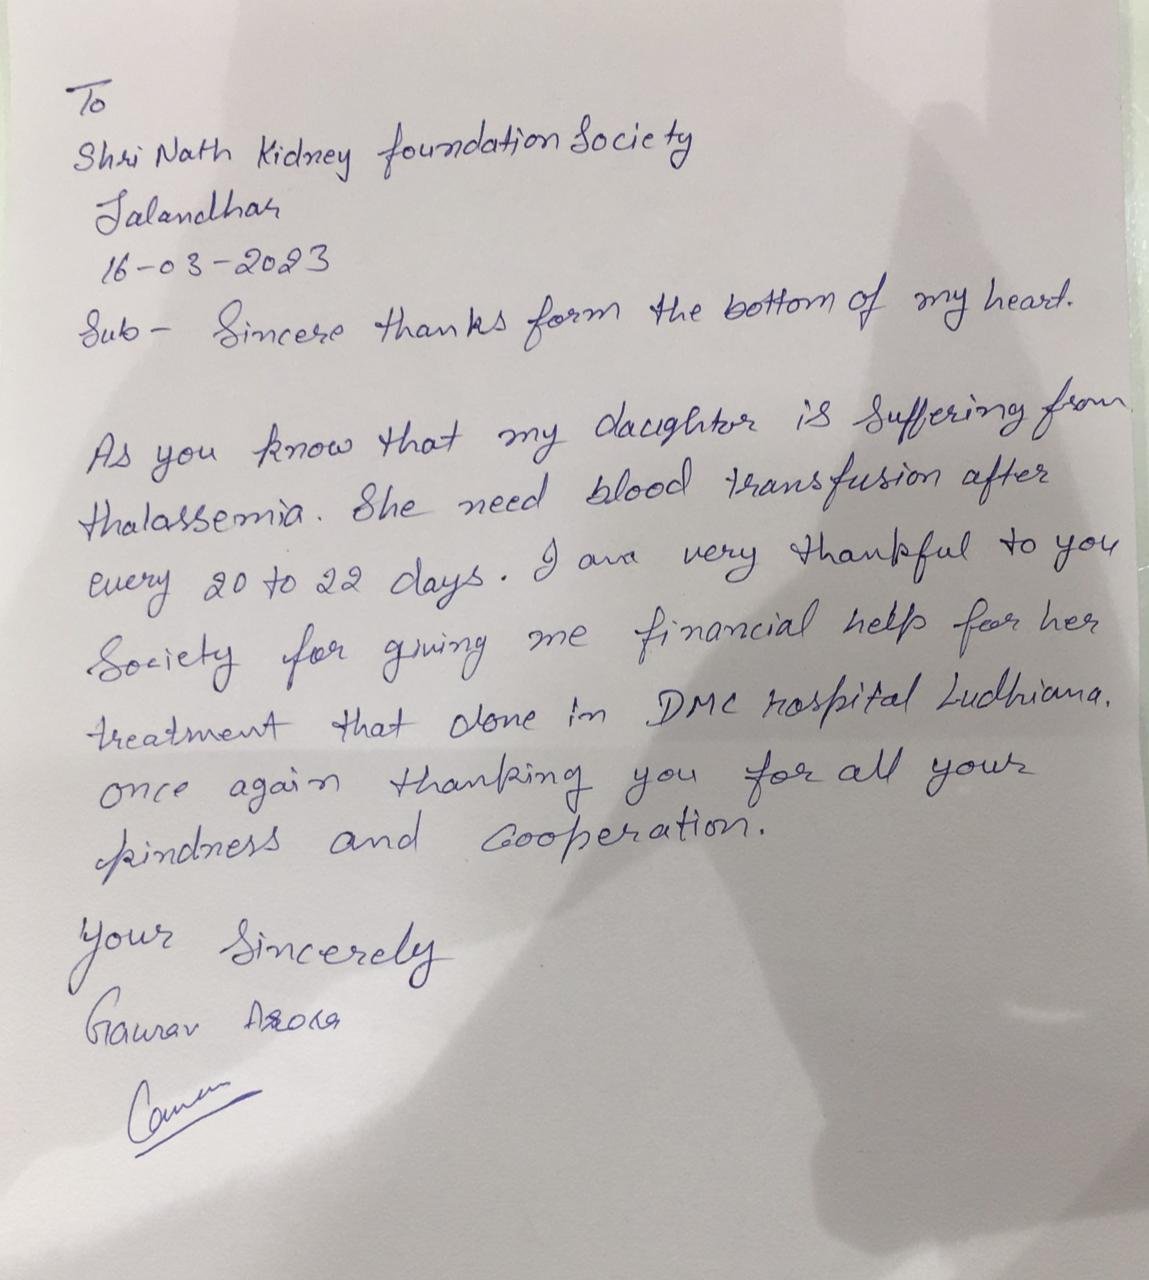 To
Shri Nath Kidney foundation Society
Jalandhar
16-03-2023
Sub - Sincere thanks form the bottom of my heart.
As you know that my daughter is suffering from
thalassemia. She need blood transfusion after
every 20 to 22 days. I am very thankful to you
Society for giving me financial help for her
treatment that done in DMC hospital Ludhiana.
once again thanking you for all your
kindness and Cooperation.
Your Sincerely
Gaurav Arora